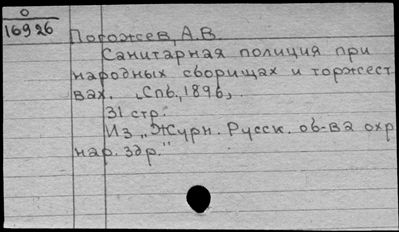 0
16926
Погожев, А.В.
Санитарная полиция при
народных сборищах и торжест
вах. Спб., 1896,.
31 стр.
Из „Журн. Русск. об-ва охр
нар. здр."